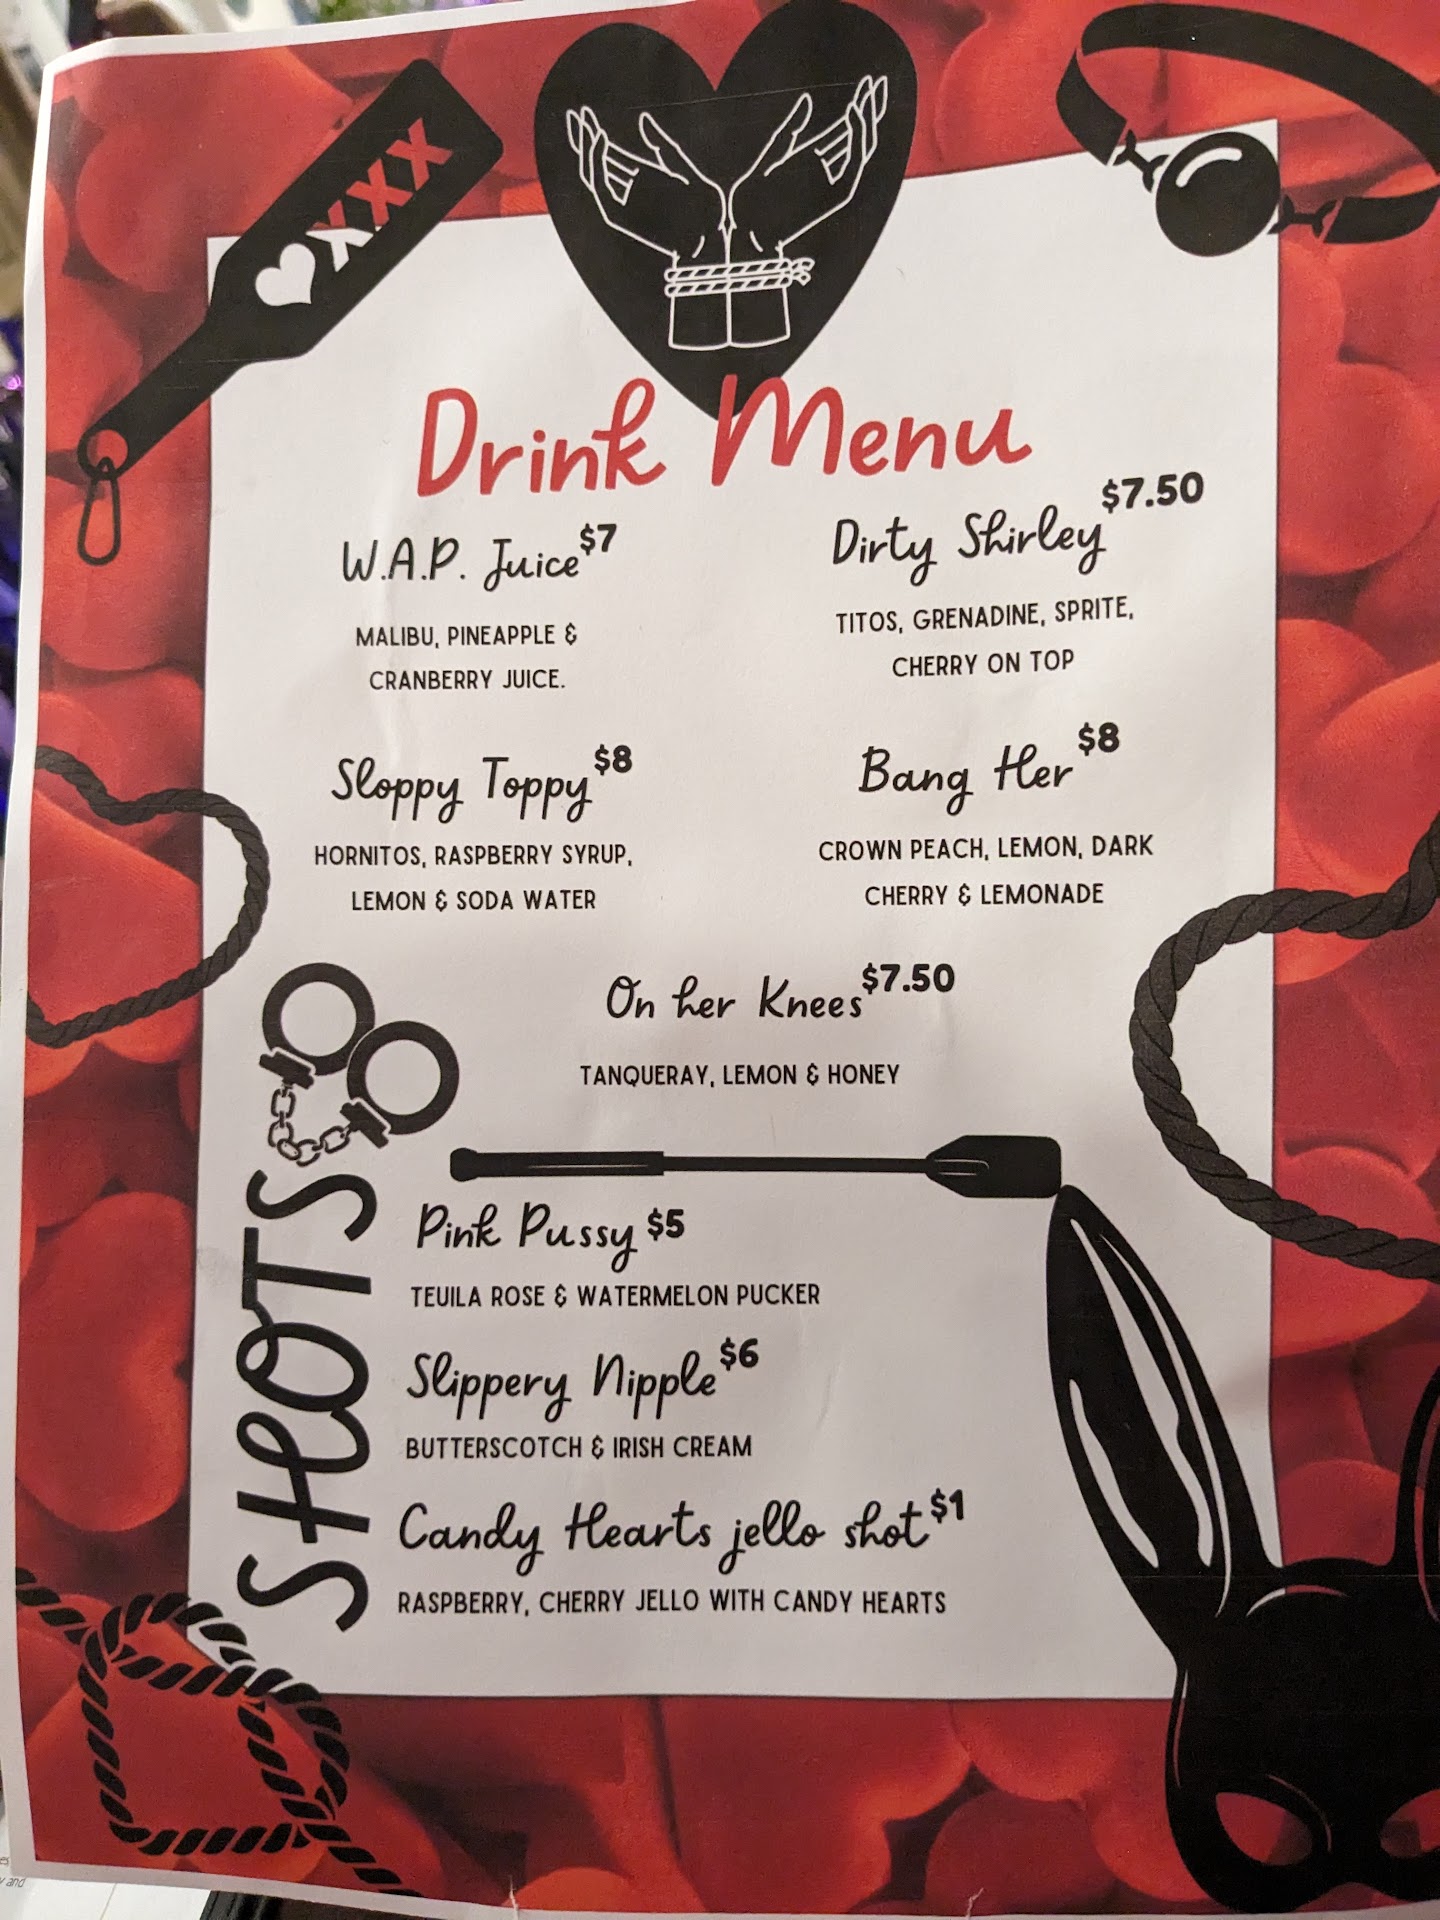 XXX
Drink Menu
W.A.P. Juice $7
MALIBU, PINEAPPLE &
CRANBERRY JUICE.
Dirty Shirley $7.50
TITOS, GRENADINE, SPRITE,
CHERRY ON TOP
Sloppy Toppy $8
HORNITOS, RASPBERRY SYRUP,
LEMON & SODA WATER
Bang Her $8
CROWN PEACH, LEMON, DARK
CHERRY & LEMONADE
On her Knees $7.50
TANQUERAY, LEMON & HONEY
SHOTS
Pink Pussy $5
TEUILA ROSE & WATERMELON PUCKER
Slippery Nipple $6
BUTTERSCOTCH & IRISH CREAM
Candy Hearts jello shot $1
RASPBERRY, CHERRY JELLO WITH CANDY HEARTS
and